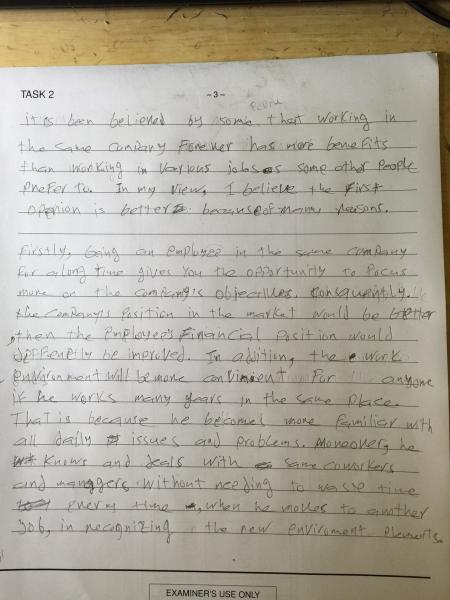 TASK 2
- 3 -
it is been believed by some that working in
the same company forever has more benefits
than working in various jobs as some other people
prefer to. In my view, I believe the first
openion is better because of many reasons.
Firstly, being an employee in the same company
for a long time gives you the opportunity to focus
more on the company's objectives. Consquently,
the company's position in the market would be better
, then the employee's financial position would
be improved. In addition, the work
environment will be more convinient for anyone
if he works many years in the same place.
That is because he becomes more familiar with
all daily issues and problems. Moreover, he
knows and deals with same coworkers
and managers without needing to waste time
every time, when he moves to another
job, in recognizing the new enviroment elements.
EXAMINER'S USE ONLY